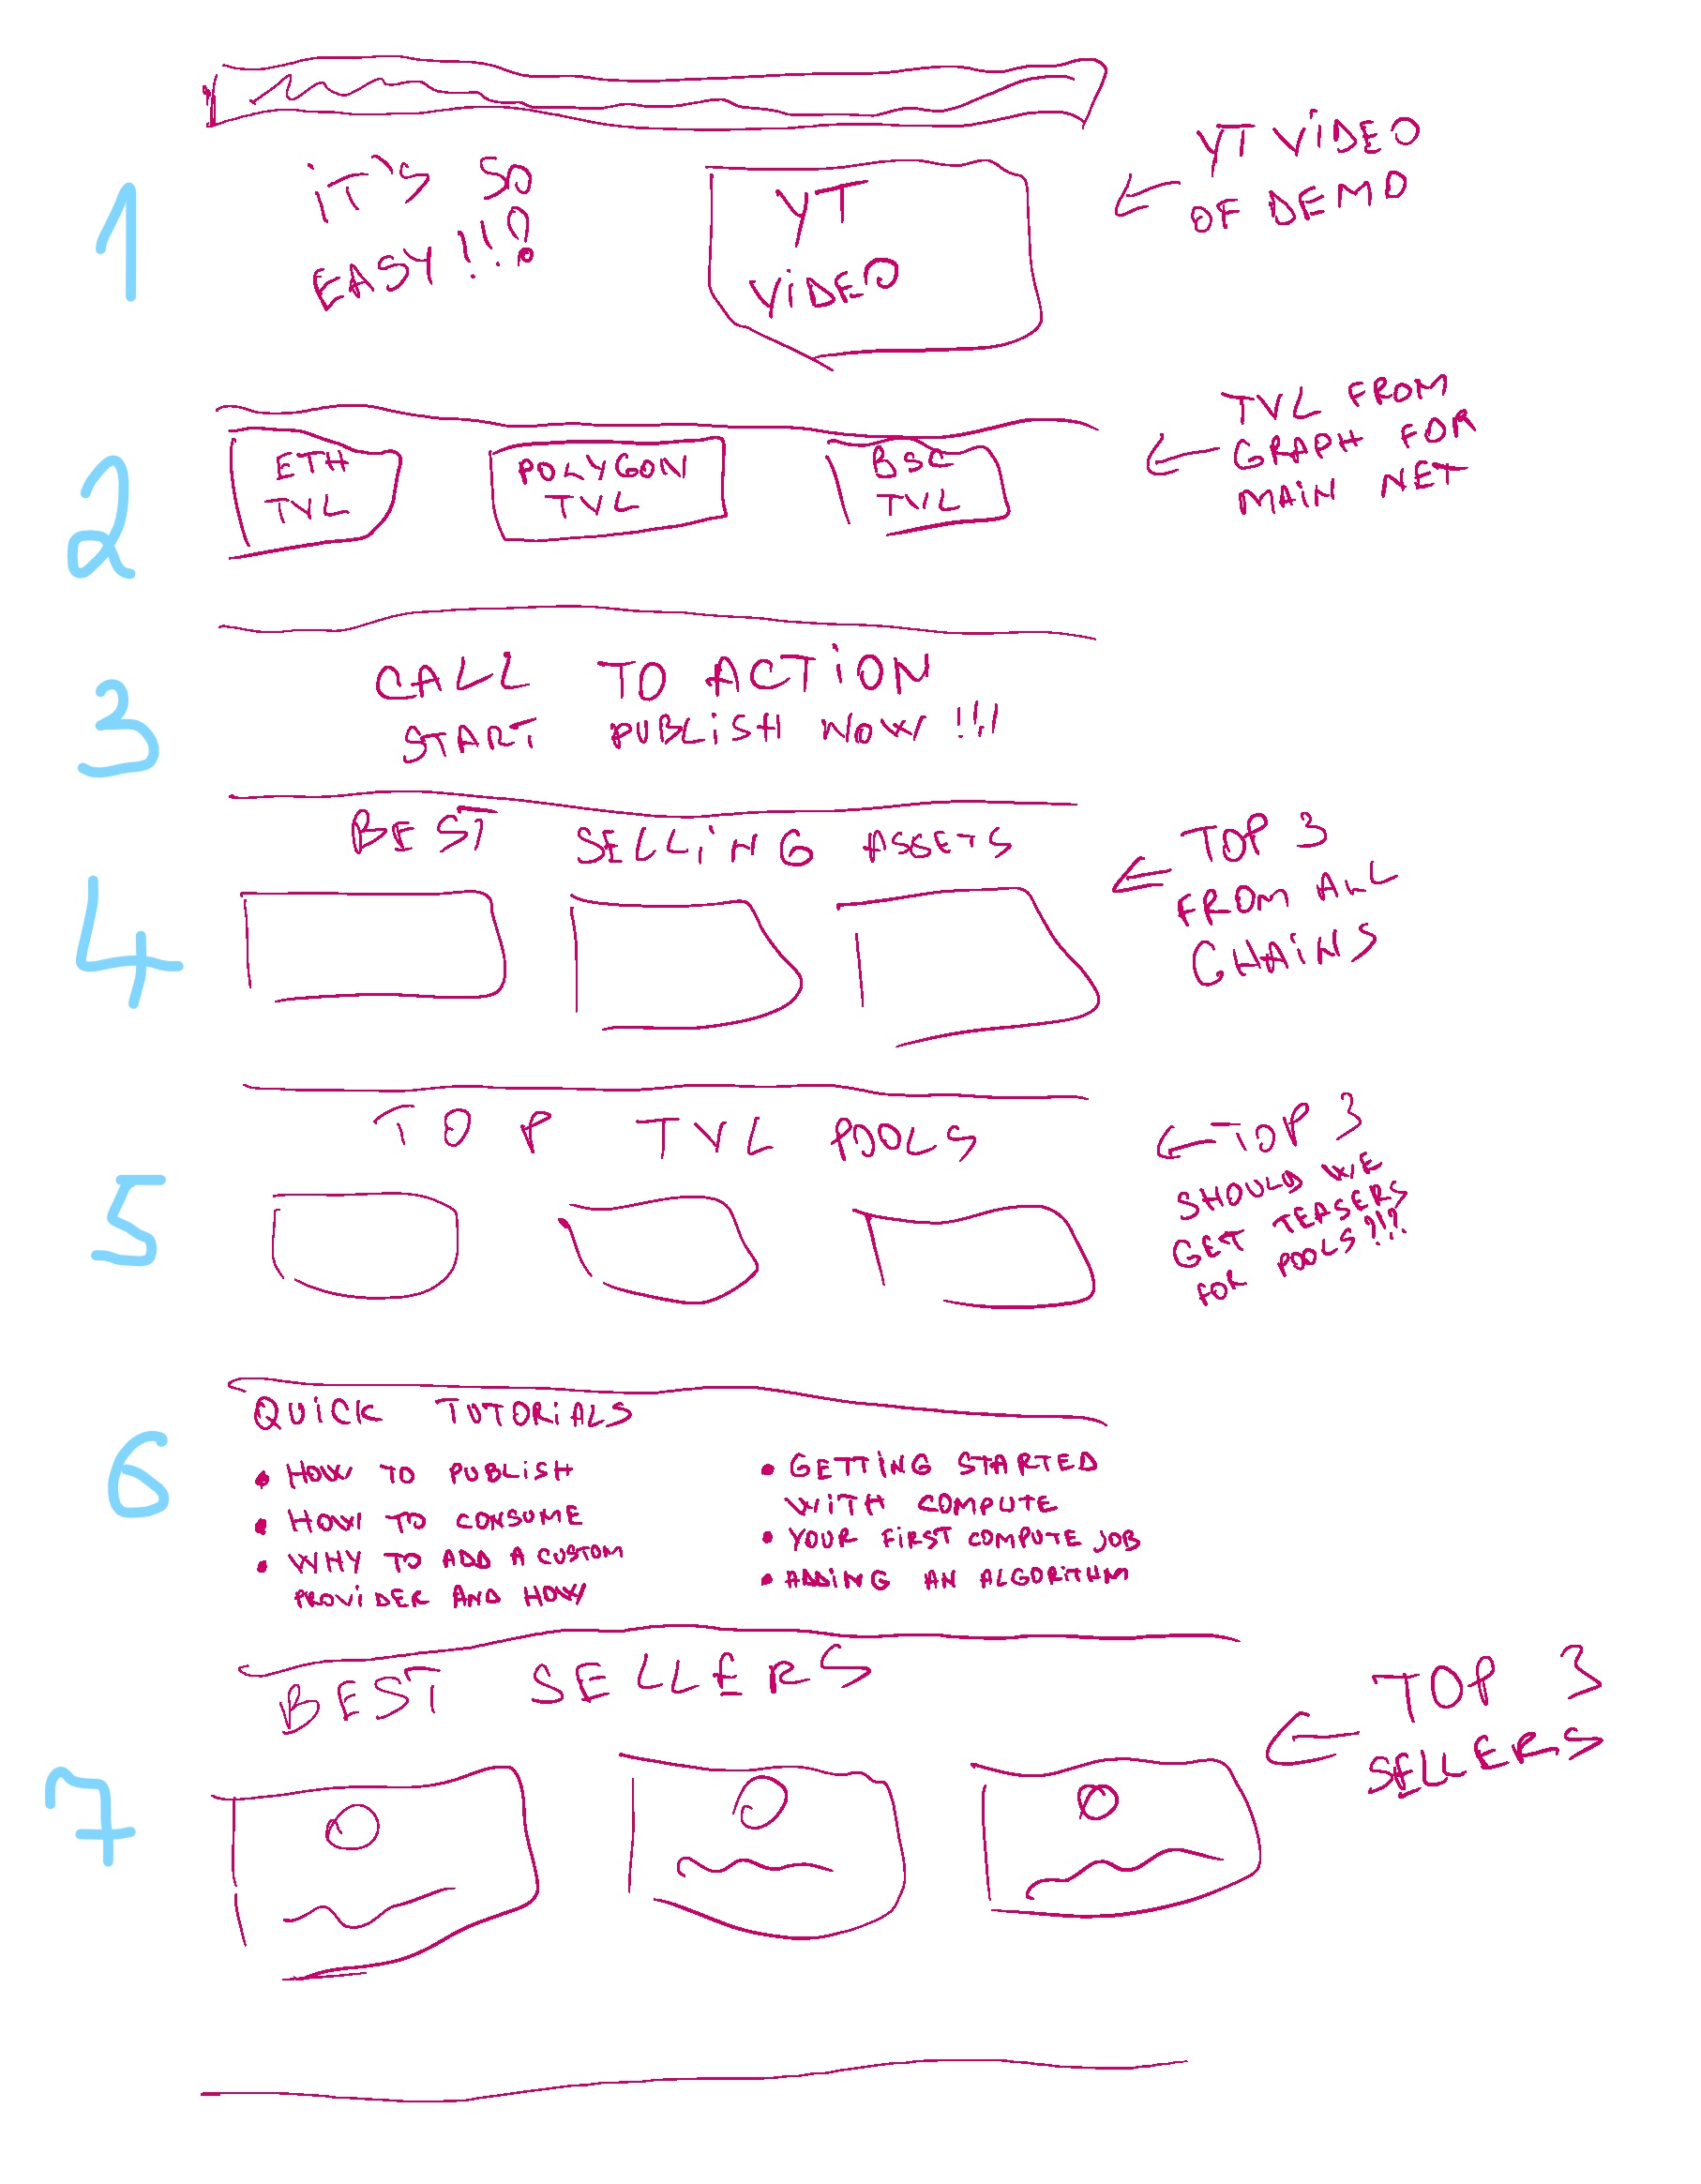 1
iT'S SO
EASY!!!
YT
ViDEO
YT ViDEO
OF DEMO
2
ETH
TVL
POLYGON
TVL
BSC
TVL
TVL FROM
GRAPH FOR
MAiN NET
3
CALL TO ACTiON
START PUBLiSH NOW !!!
4
BEST SELLiNG ASSETS
TOP 3
FROM ALL
CHAiNS
5
TOP TVL POOLS
TOP 3
SHOULD WE
GET TEASERS
FOR POOLS?!?
6
QUiCK TUTORiALS
• HOW TO PUBLiSH
• HOW TO CONSUME
• WHY TO ADD A CUSTOM
PROViDER AND HOW
• GETTiNG STARTED
WiTH COMPUTE
• YOUR FiRST COMPUTE JOB
• ADDiNG AN ALGORiTHM
7
BEST SELLERS
TOP 3
SELLERS